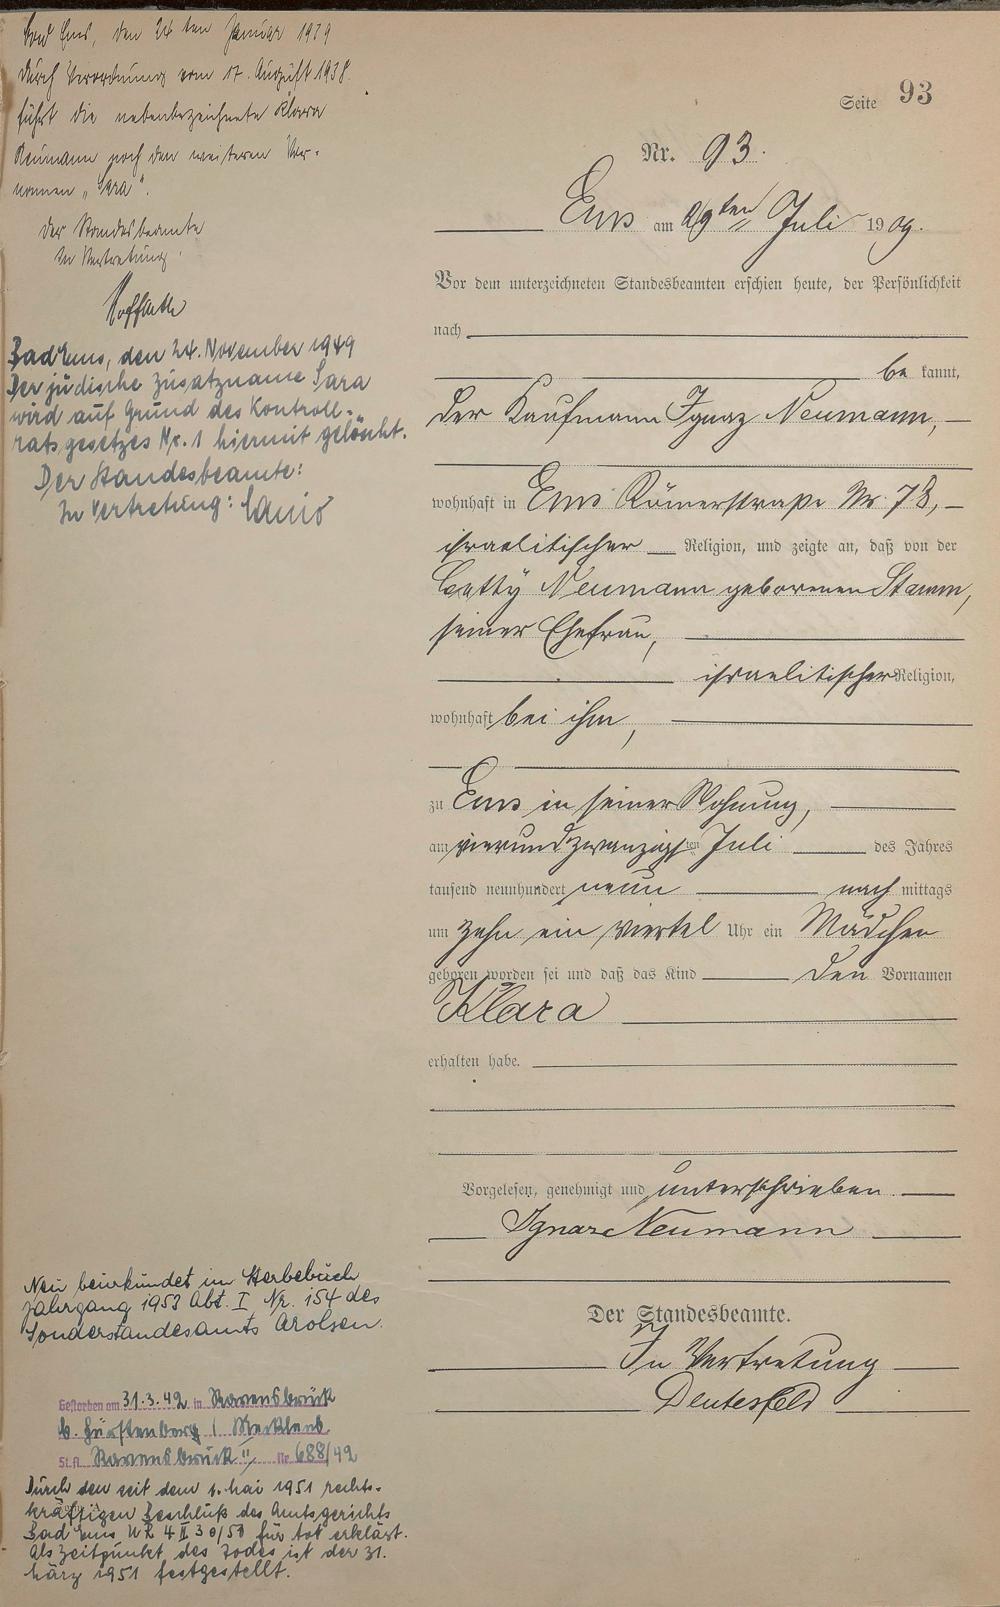 Bad Ems, den 24ten Januar 1939
Durch Verordnung vom 17. August 1938
führt die nebenbezeichnete Klara
Neumann noch den weiteren Vor-
namen „Sara“.
Der Standesbeamte
In Vertretung
Bad Ems, den 24. November 1949
Der jüdische Zusatzname Sara
wird auf Grund des Kontroll-
ratsgesetzes Nr. 1 hiermit gelöscht.
Der Standesbeamte:
In Vertretung:
Neu beurkundet im Sterbebuch
Jahrgang 1953 Abt. I Nr. 154 des
Sonderstandesamts Arolsen.
Gestorben am 31.3.42 in Ravensbrück
b. Fürstenberg / Mecklenb.
St.A. Ravensbrück II Nr. 688/42
Durch den seit dem 1. Mai 1951 rechts-
kräftigen Beschluß des Amtsgerichts
Bad Ems UR 4 II 30/50 für tot erklärt.
Als Zeitpunkt des Todes ist der 31.
März 1951 festgestellt.
Seite 93
Nr. 93.
Ems am 29ten Juli 1909.
Vor dem unterzeichneten Standesbeamten erschien heute, der Persönlichkeit
nach
be kannt,
der Kaufmann Ignaz Neumann,
wohnhaft in Ems Römerstraße Nr. 78,
israelitischer Religion, und zeigte an, daß von der
Betty Neumann geborenen Stamm,
seiner Ehefrau,
israelitischer Religion,
wohnhaft bei ihm,
zu Ems in seiner Wohnung,
am vierundzwanzigsten Juli des Jahres
tausend neunhundert neun nach mittags
um zehn ein viertel Uhr ein Mädchen
geboren worden sei und daß das Kind den Vornamen
Klara
erhalten habe.
Vorgelesen, genehmigt und unterschrieben.
Ignaz Neumann
Der Standesbeamte.
In Vertretung
Deutesfeld